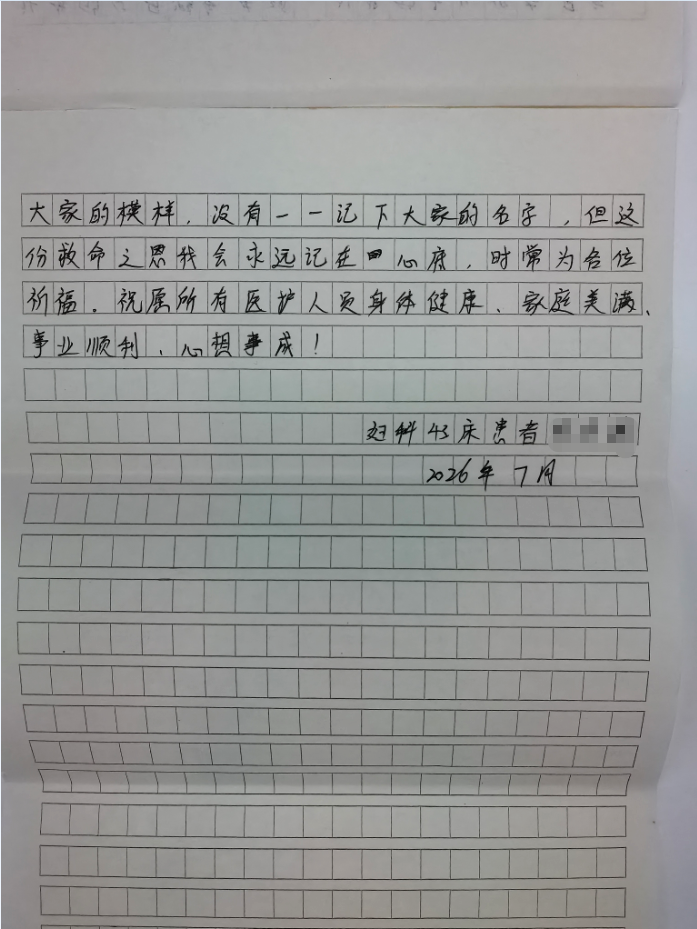 大家的模样，没有一一记下大家的名字，但这
份救命之恩我会永远记在心底，时常为各位
祈福。祝愿所有医护人员身体健康、家庭美满、
事业顺利、心想事成！
妇科43床患者
2026年7月